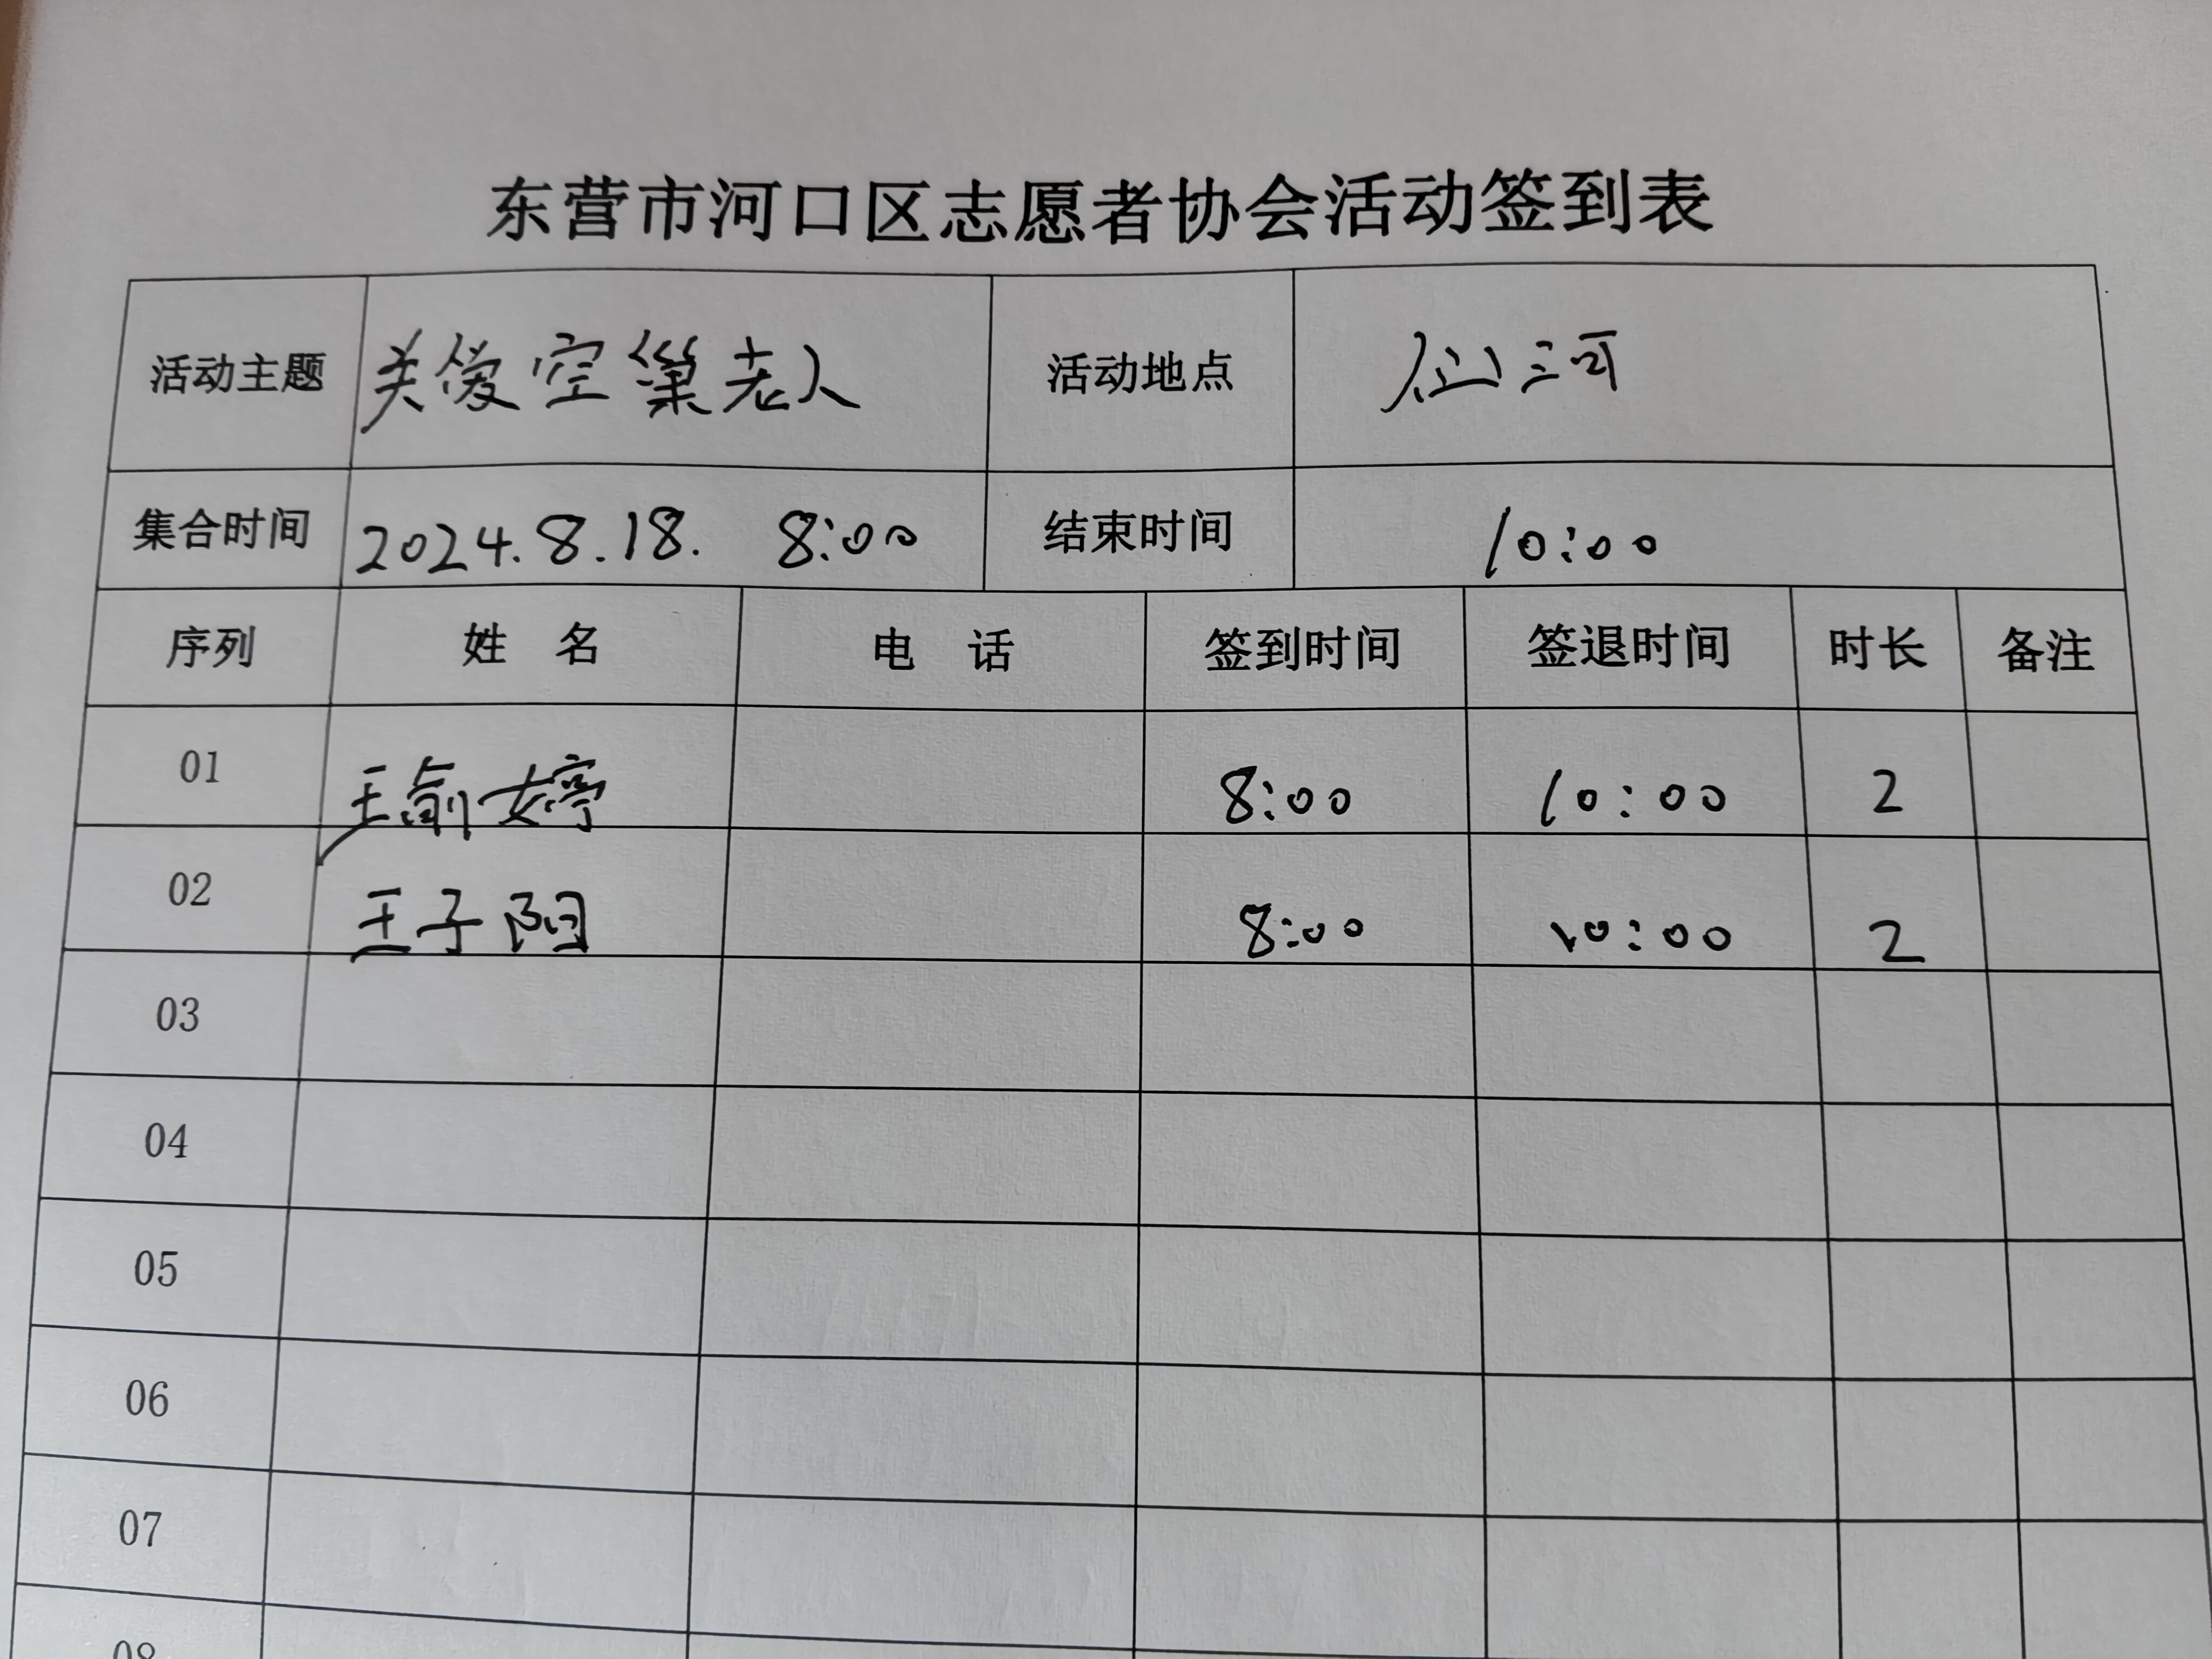 东营市河口区志愿者协会活动签到表
活动主题 关爱空巢老人 活动地点 仙河
集合时间 2024.8.18. 8:00 结束时间 10:00
序列 姓 名 电 话 签到时间 签退时间 时长 备注
01 王俞婷 8:00 10:00 2
02 王子阳 8:00 10:00 2
03
04
05
06
07
08